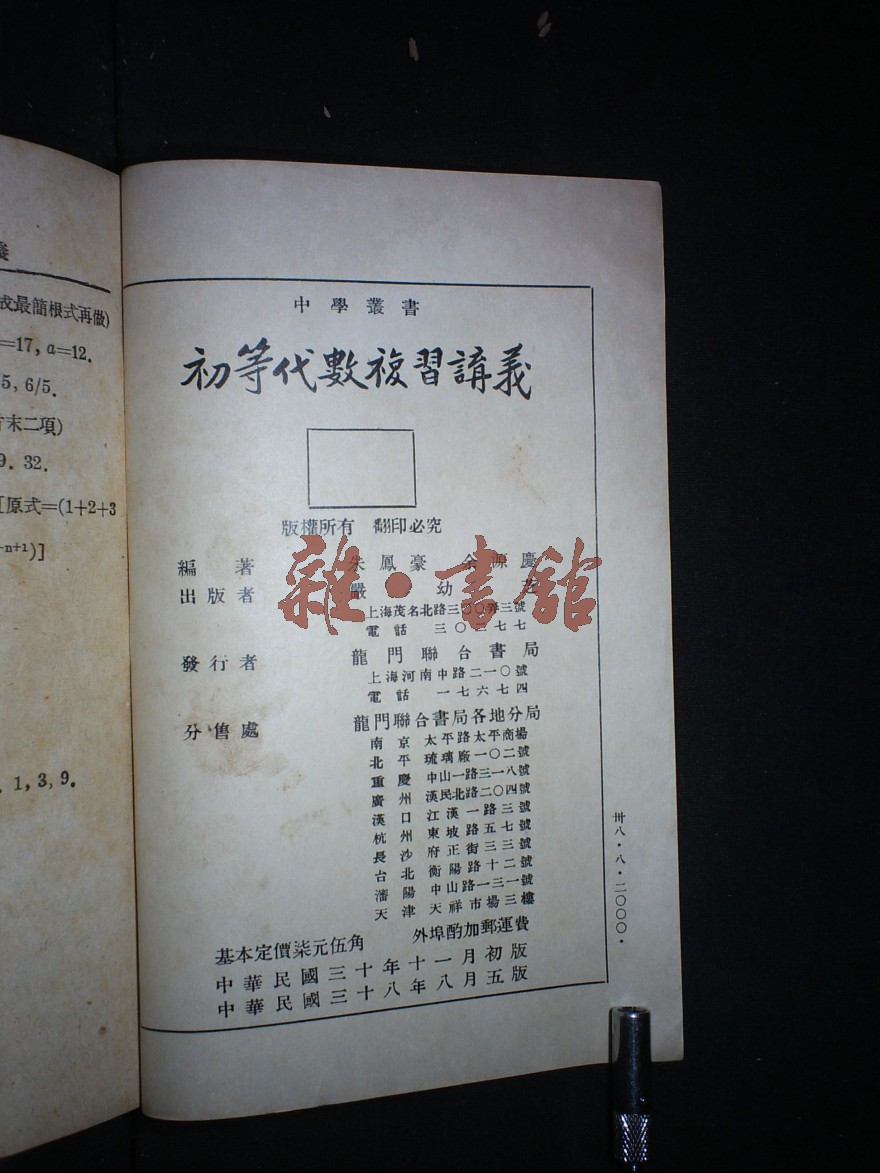 義
成最簡根式再做)
=17, a=12.
5, 6/5.
末二項)
9. 32.
[原式=(1+2+3
-n+1)]
1, 3, 9.
中學叢書
初等代數複習講義
版權所有 翻印必究
編著 朱鳳豪 余源慶
出版者 嚴幼
上海茂名北路三〇〇弄三號
電話 三〇三七七
發行者 龍門聯合書局
上海河南中路二一〇號
電話 一七六七四
分售處 龍門聯合書局各地分局
南京 太平路太平商場
北平 琉璃廠一〇二號
重慶 中山一路三一八號
廣州 漢民北路二〇四號
漢口 江漢一路三號
杭州 東坡路五七號
長沙 府正街三三號
台北 衡陽路十二號
瀋陽 中山路一三一號
天津 天祥市場三樓
基本定價柒元伍角 外埠酌加郵運費
中華民國三十年十一月初版
中華民國三十八年八月五版
卅八·八·二〇〇〇·
雜·書館